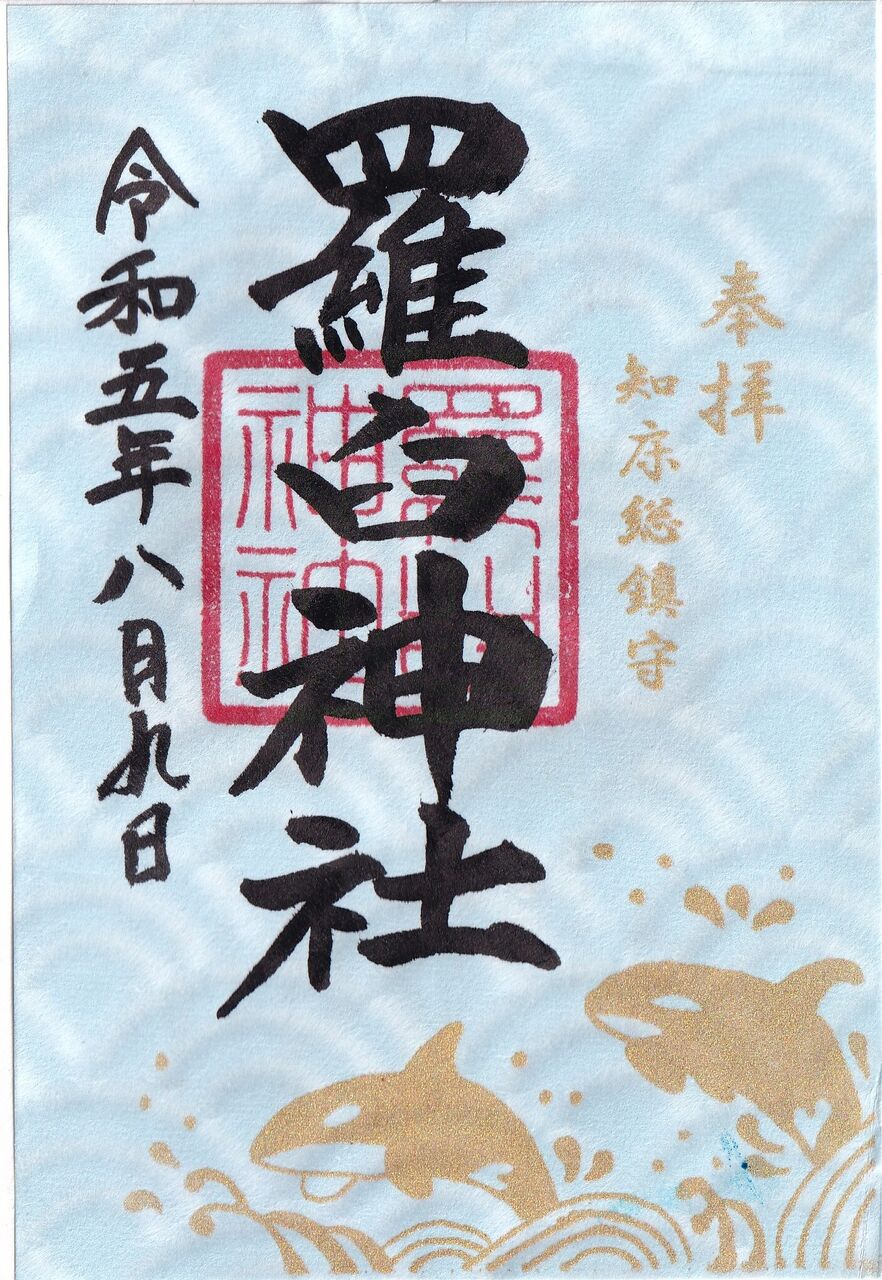 奉拝
知床総鎮守
羅臼神社
令和五年八月九日